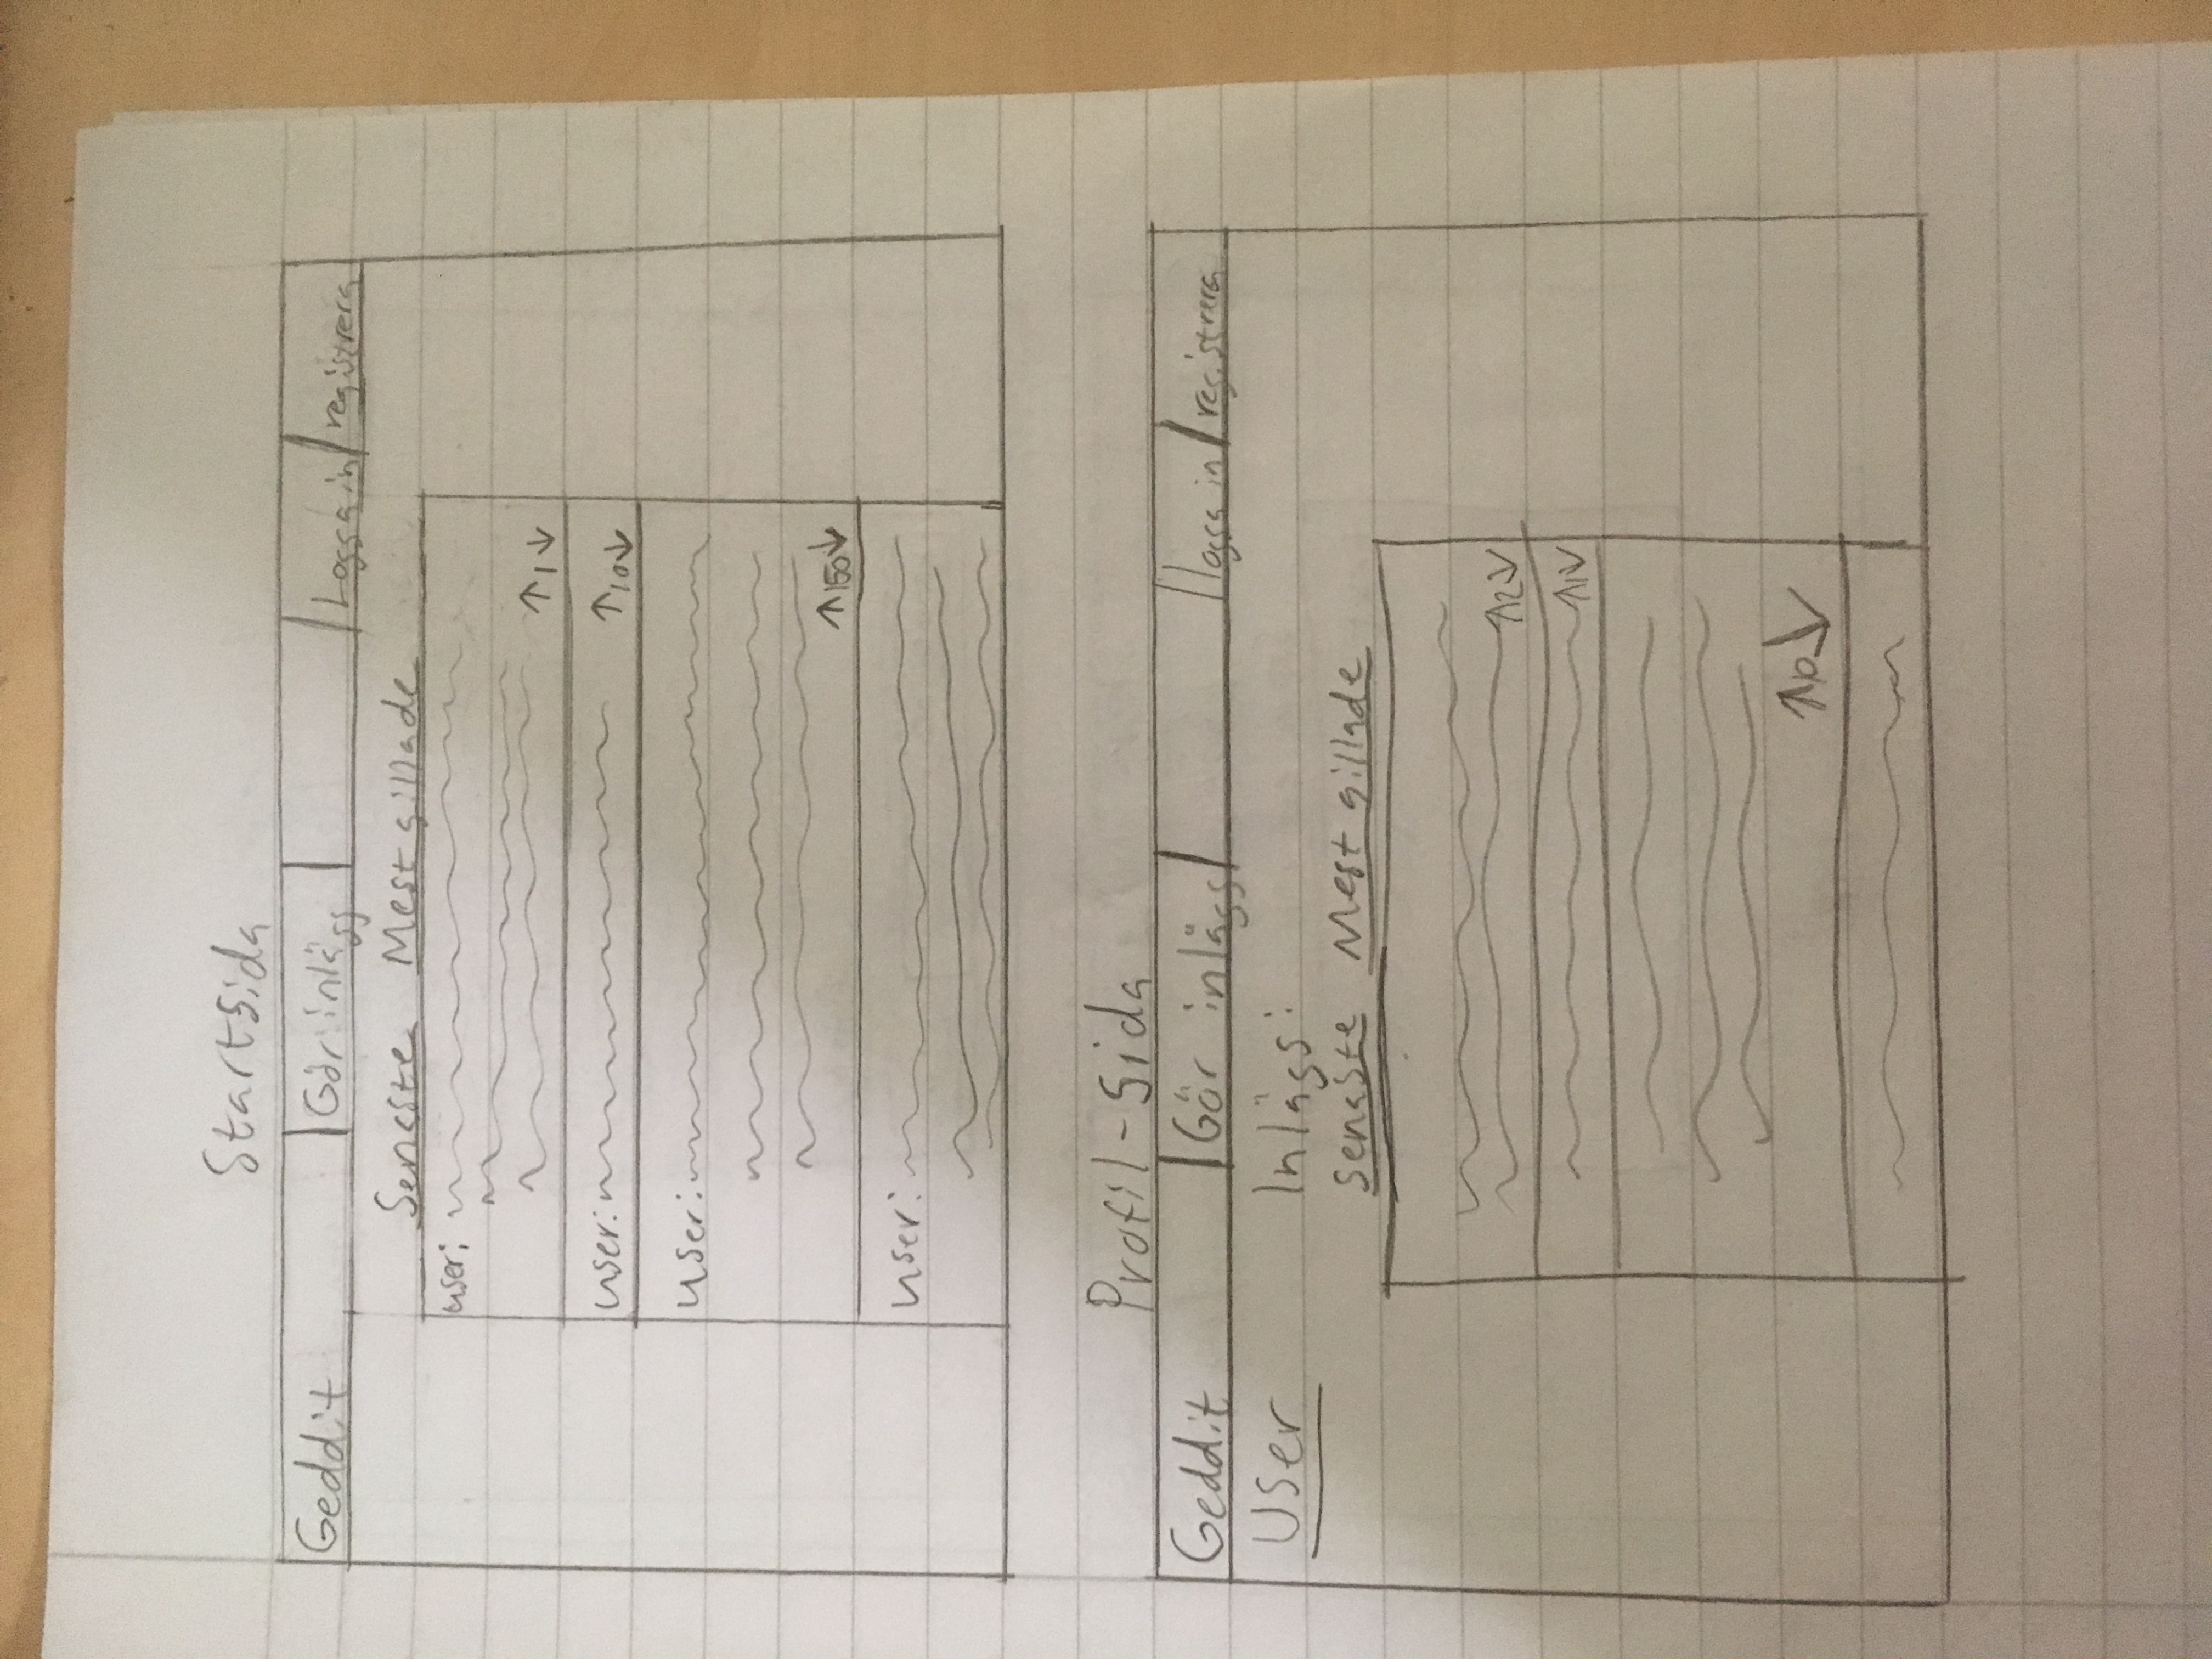 Startsida
Geddit Gör inlägg Logga in registrera
Senaste Mest gillade
user:
↑1↓
user: ↑10↓
user:
↑150↓
user:
Profil-sida
Geddit Gör inlägg logga in registrera
User Inlägg:
senaste Mest gillade
↑2↓
↑1↓
↑10↓